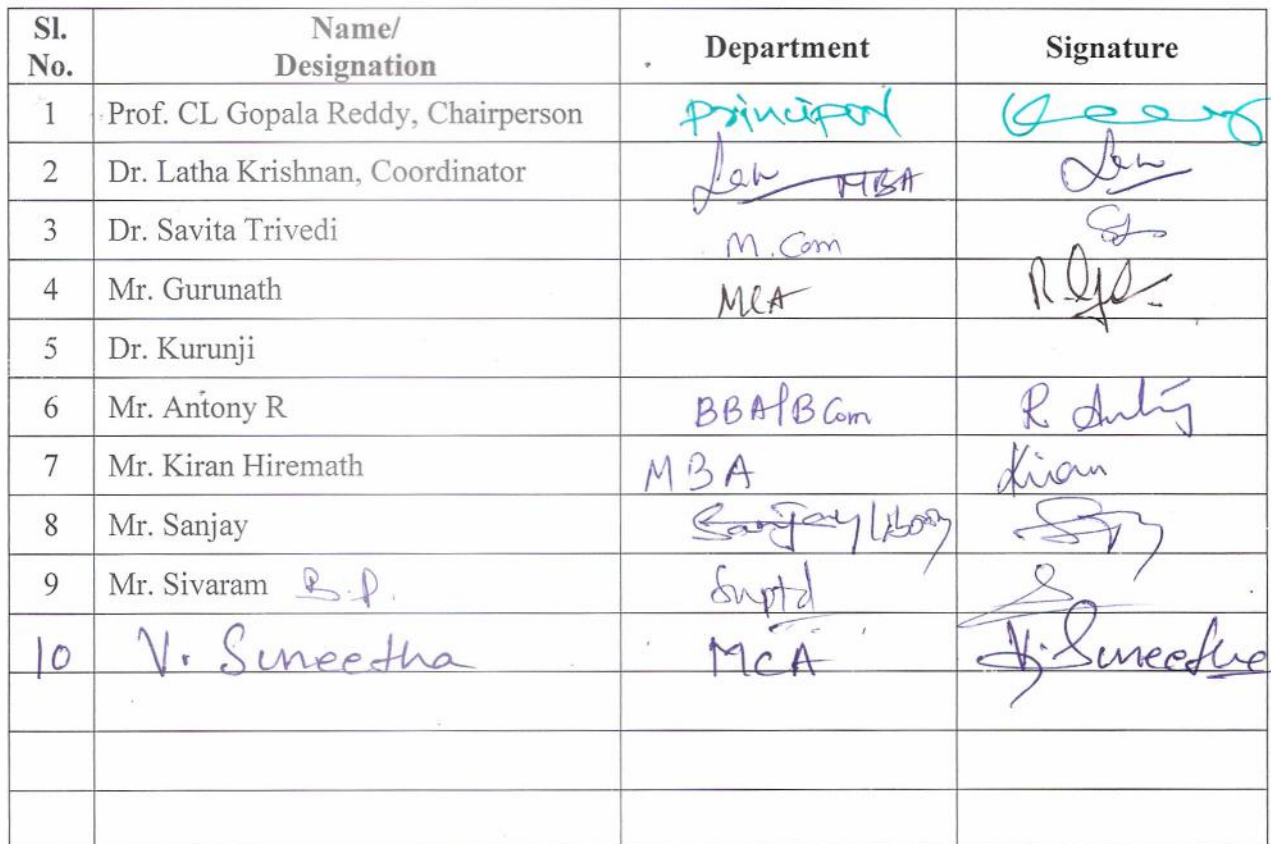 Sl. No. Name/ Designation Department Signature
1 Prof. CL Gopala Reddy, Chairperson Principal
2 Dr. Latha Krishnan, Coordinator MBA
3 Dr. Savita Trivedi M.Com
4 Mr. Gurunath MCA
5 Dr. Kurunji
6 Mr. Antony R BBA/BCom R. Antony
7 Mr. Kiran Hiremath MBA Kiran
8 Mr. Sanjay Sanjay Library
9 Mr. Sivaram B.P. Suptd
10 V. Suneetha MCA V. Suneetha